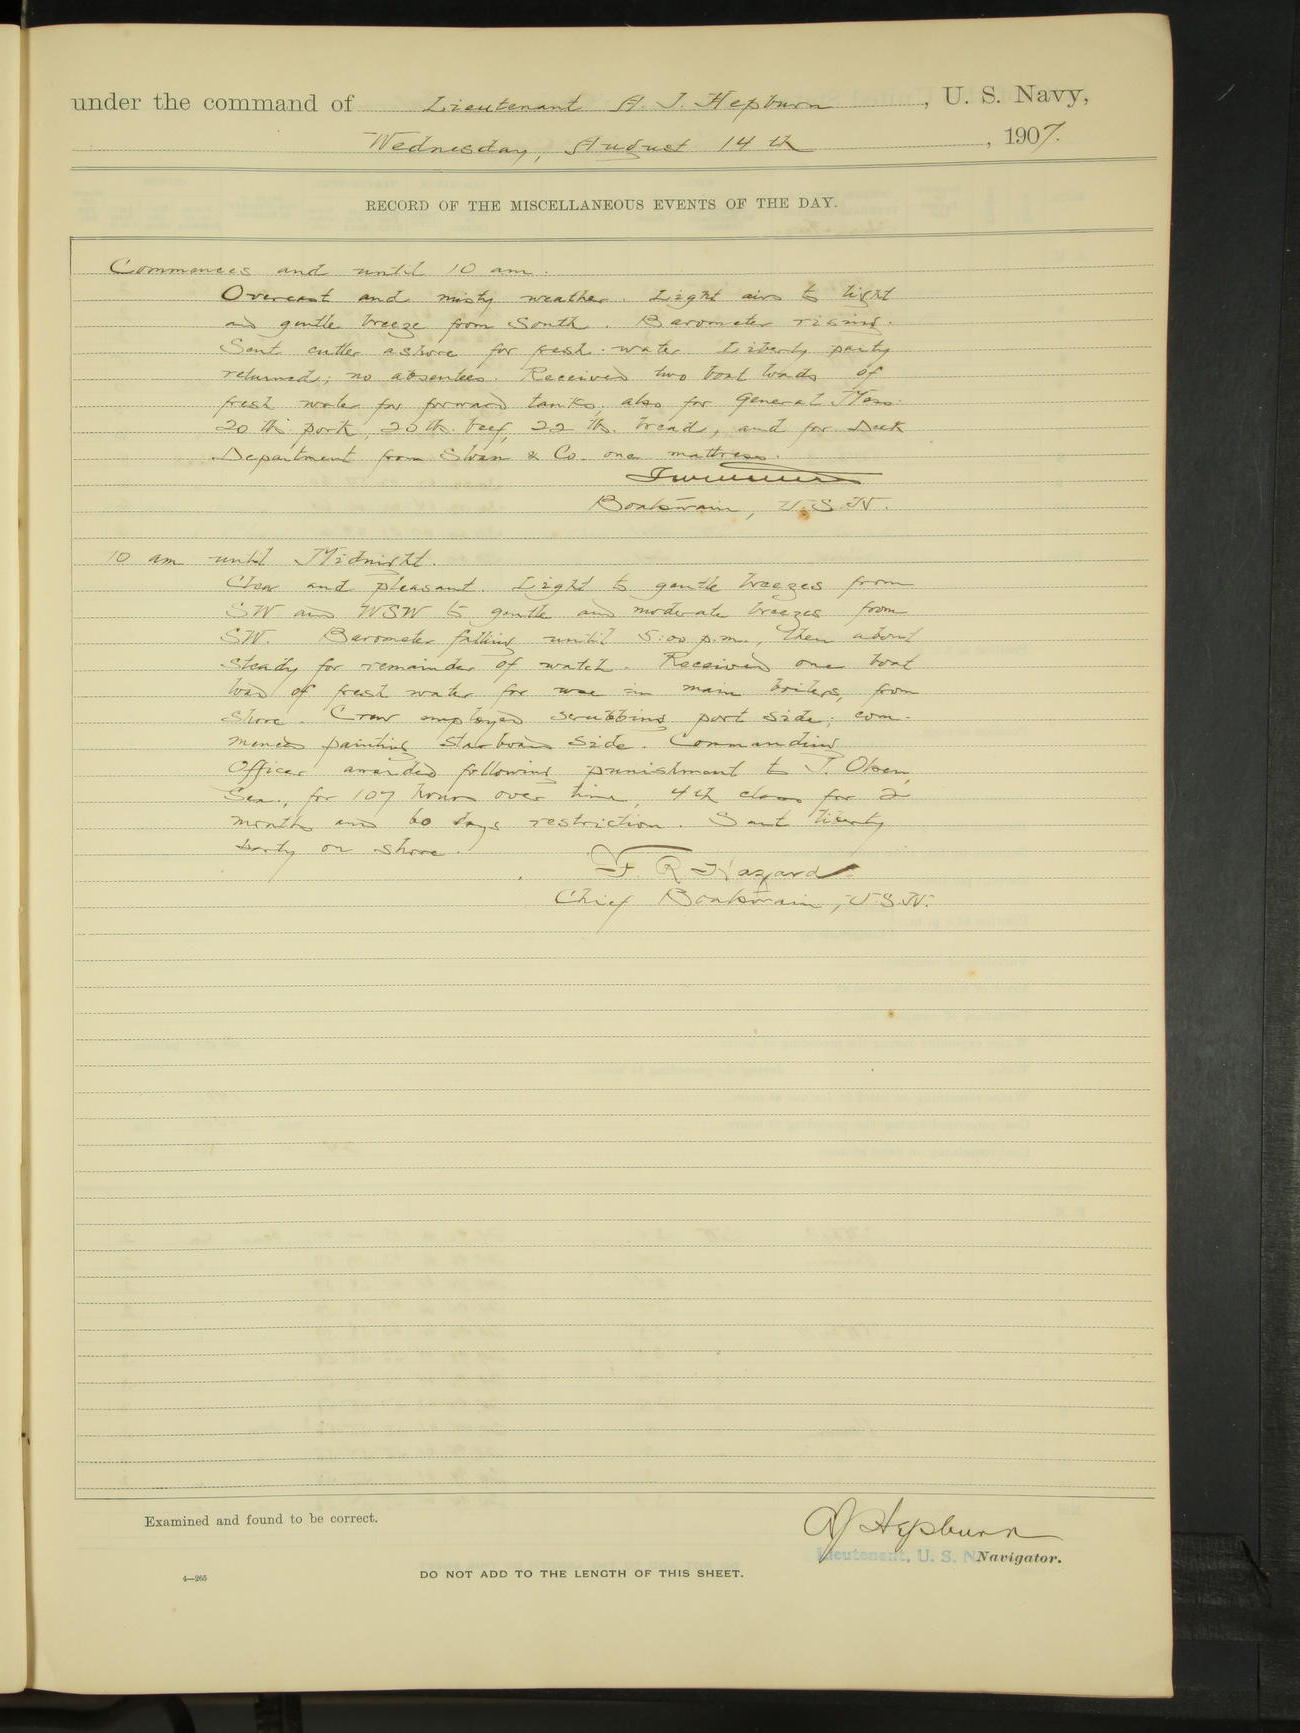 under the command of Lieutenant A. J. Hepburn, U. S. Navy,
Wednesday, August 14th, 1907.
RECORD OF THE MISCELLANEOUS EVENTS OF THE DAY.
Commences and until 10 am.
Overcast and misty weather. Light airs to light
and gentle breeze from South. Barometer rising.
Sent cutter ashore for fresh water. Liberty party
returned; no absentees. Received two boat loads of
fresh water for forward tanks, also for General Mess
20 lb pork, 20 lb. beef, 22 lb. bread, and for Deck
Department from Sloan & Co. one mattress.
Boatswain, U.S.N.
10 am until Midnight.
Clear and pleasant. Light to gentle breezes from
SW and WSW to gentle and moderate breezes from
SW. Barometer falling until 5:00 p.m., then about
steady for remainder of watch. Received one boat
load of fresh water for use in main boilers, from
shore. Crew employed scrubbing port side; com-
menced painting starboard side. Commanding
Officer awarded following punishment to J. Olsen,
Sea., for 107 hours over time, 4th class for 2
months and 60 days restriction. Sent liberty
party on shore.
F R Hazard
Chief Boatswain, U.S.N.
Examined and found to be correct.
A J Hepburn
Lieutenant, U. S. N. Navigator.
4—265
DO NOT ADD TO THE LENGTH OF THIS SHEET.